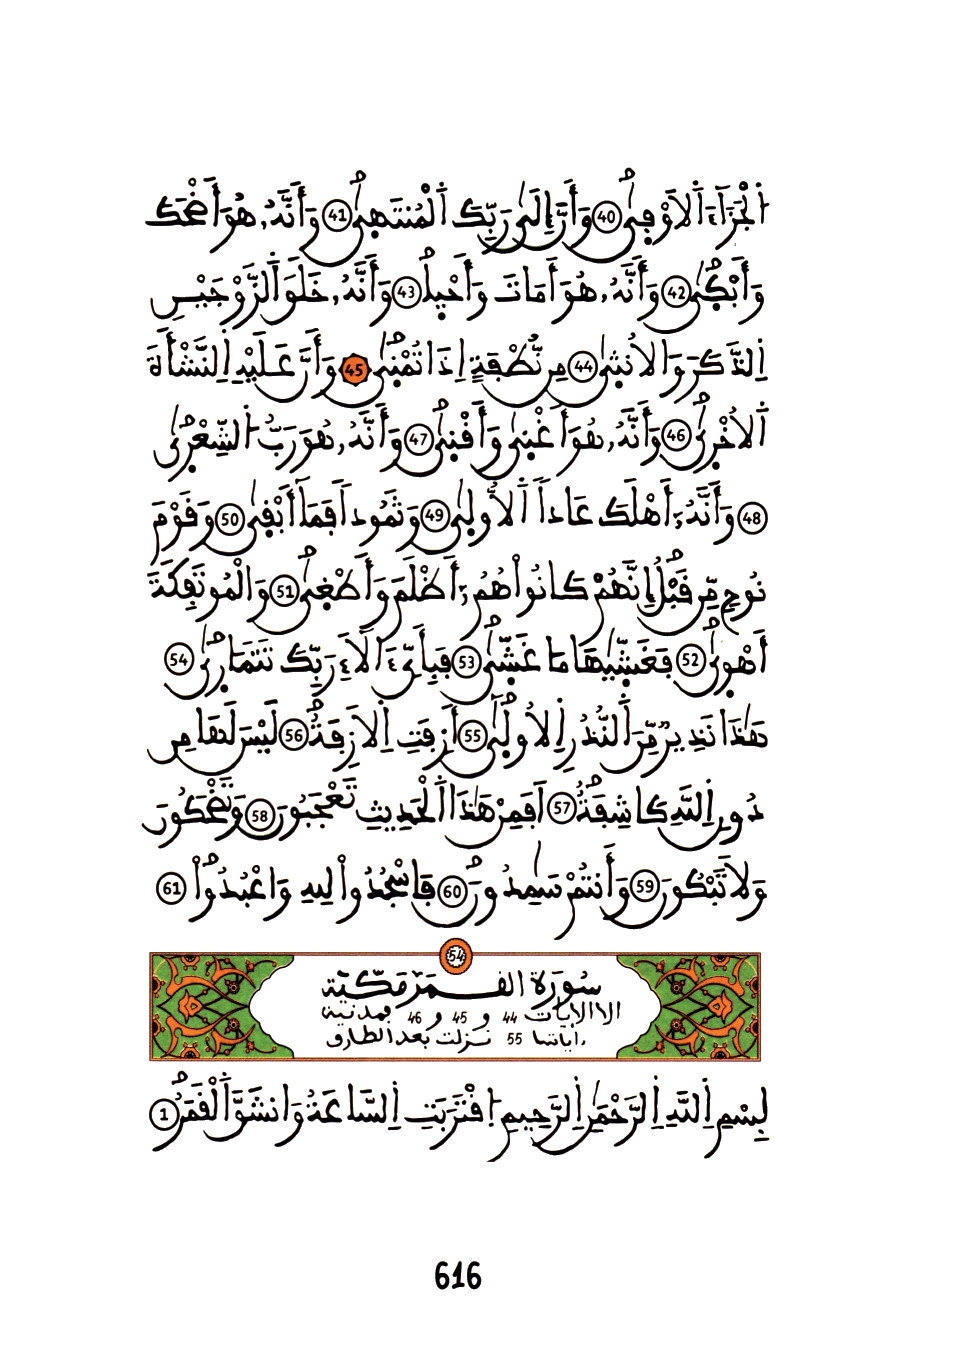 اَ۬لْجَزَآءَ اَ۬لَاوْف۪يٰ 40 وَأَنَّ إِلَيٰ رَبِّكَ اَ۬لْمُنتَه۪يٰ 41 وَأَنَّهُۥ هُوَ أَضْحَكَ
وَأَبْك۪يٰ 42 وَأَنَّهُۥ هُوَ أَمَاتَ وَأَحْي۪ا 43 وَأَنَّهُۥ خَلَقَ اَ۬لزَّوْجَيْنِ
اِ۬لذَّكَرَ وَالُانث۪يٰ 44 مِن نُّطْفَةٍ إِذَا تُمْن۪يٰ 45 وَأَنَّ عَلَيْهِ اِ۬لنَّشْأَةَ
اَ۬لُاخْر۪يٰ 46 وَأَنَّهُۥ هُوَ أَغْن۪يٰ وَأَقْن۪يٰ 47 وَأَنَّهُۥ هُوَ رَبُّ اُ۬لشِّعْر۪يٰ
48 وَأَنَّهُۥٓ أَهْلَكَ عَاداً اَ۬لُّاول۪يٰ 49 وَثَمُوداٗ فَمَآ أَبْق۪يٰ 50 وَقَوْمَ
نُوحٖ مِّن قَبْلُ إِنَّهُمْ كَانُواْ هُمُۥٓ أَظْلَمَ وَأَطْغ۪يٰ 51 وَالْمُوتَفِكَةَ
أَهْو۪يٰ 52 فَغَشّ۪يٰهَا مَا غَشّ۪يٰ 53 فَبِأَيِّ ءَالَآءِ رَبِّكَ تَتَمَار۪يٰ 54
هَٰذَا نَذِيرٞ مِّنَ اَ۬لنُّذُرِ اِ۬لُاول۪يٰٓ 55 أَزِفَتِ اِ۬لَازِفَةُ 56 لَيْسَ لَهَا مِن
دُونِ اِ۬للَّهِ كَاشِفَةٌ 57 اَفَمِنْ هَٰذَا اَ۬لْحَدِيثِ تَعْجَبُونَ 58 وَتَضْحَكُونَ
وَلَا تَبْكُونَ 59 وَأَنتُمْ سَٰمِدُونَ 60 فَاسْجُدُواْ لِلهِ وَاعْبُدُواْ 61
54
سُورَة القـمـر مَكّيّة
الا الايات 44 و 45 و 46 فمدنية
ءاياتها 55 نـزلت بعد الطارق
بِسْمِ اِ۬للَّهِ اِ۬لرَّحْمَٰنِ اِ۬لرَّحِيمِ اِ۪قْتَرَبَتِ اِ۬لسَّاعَةُ وَانشَقَّ اَ۬لْقَمَرُ 1
616